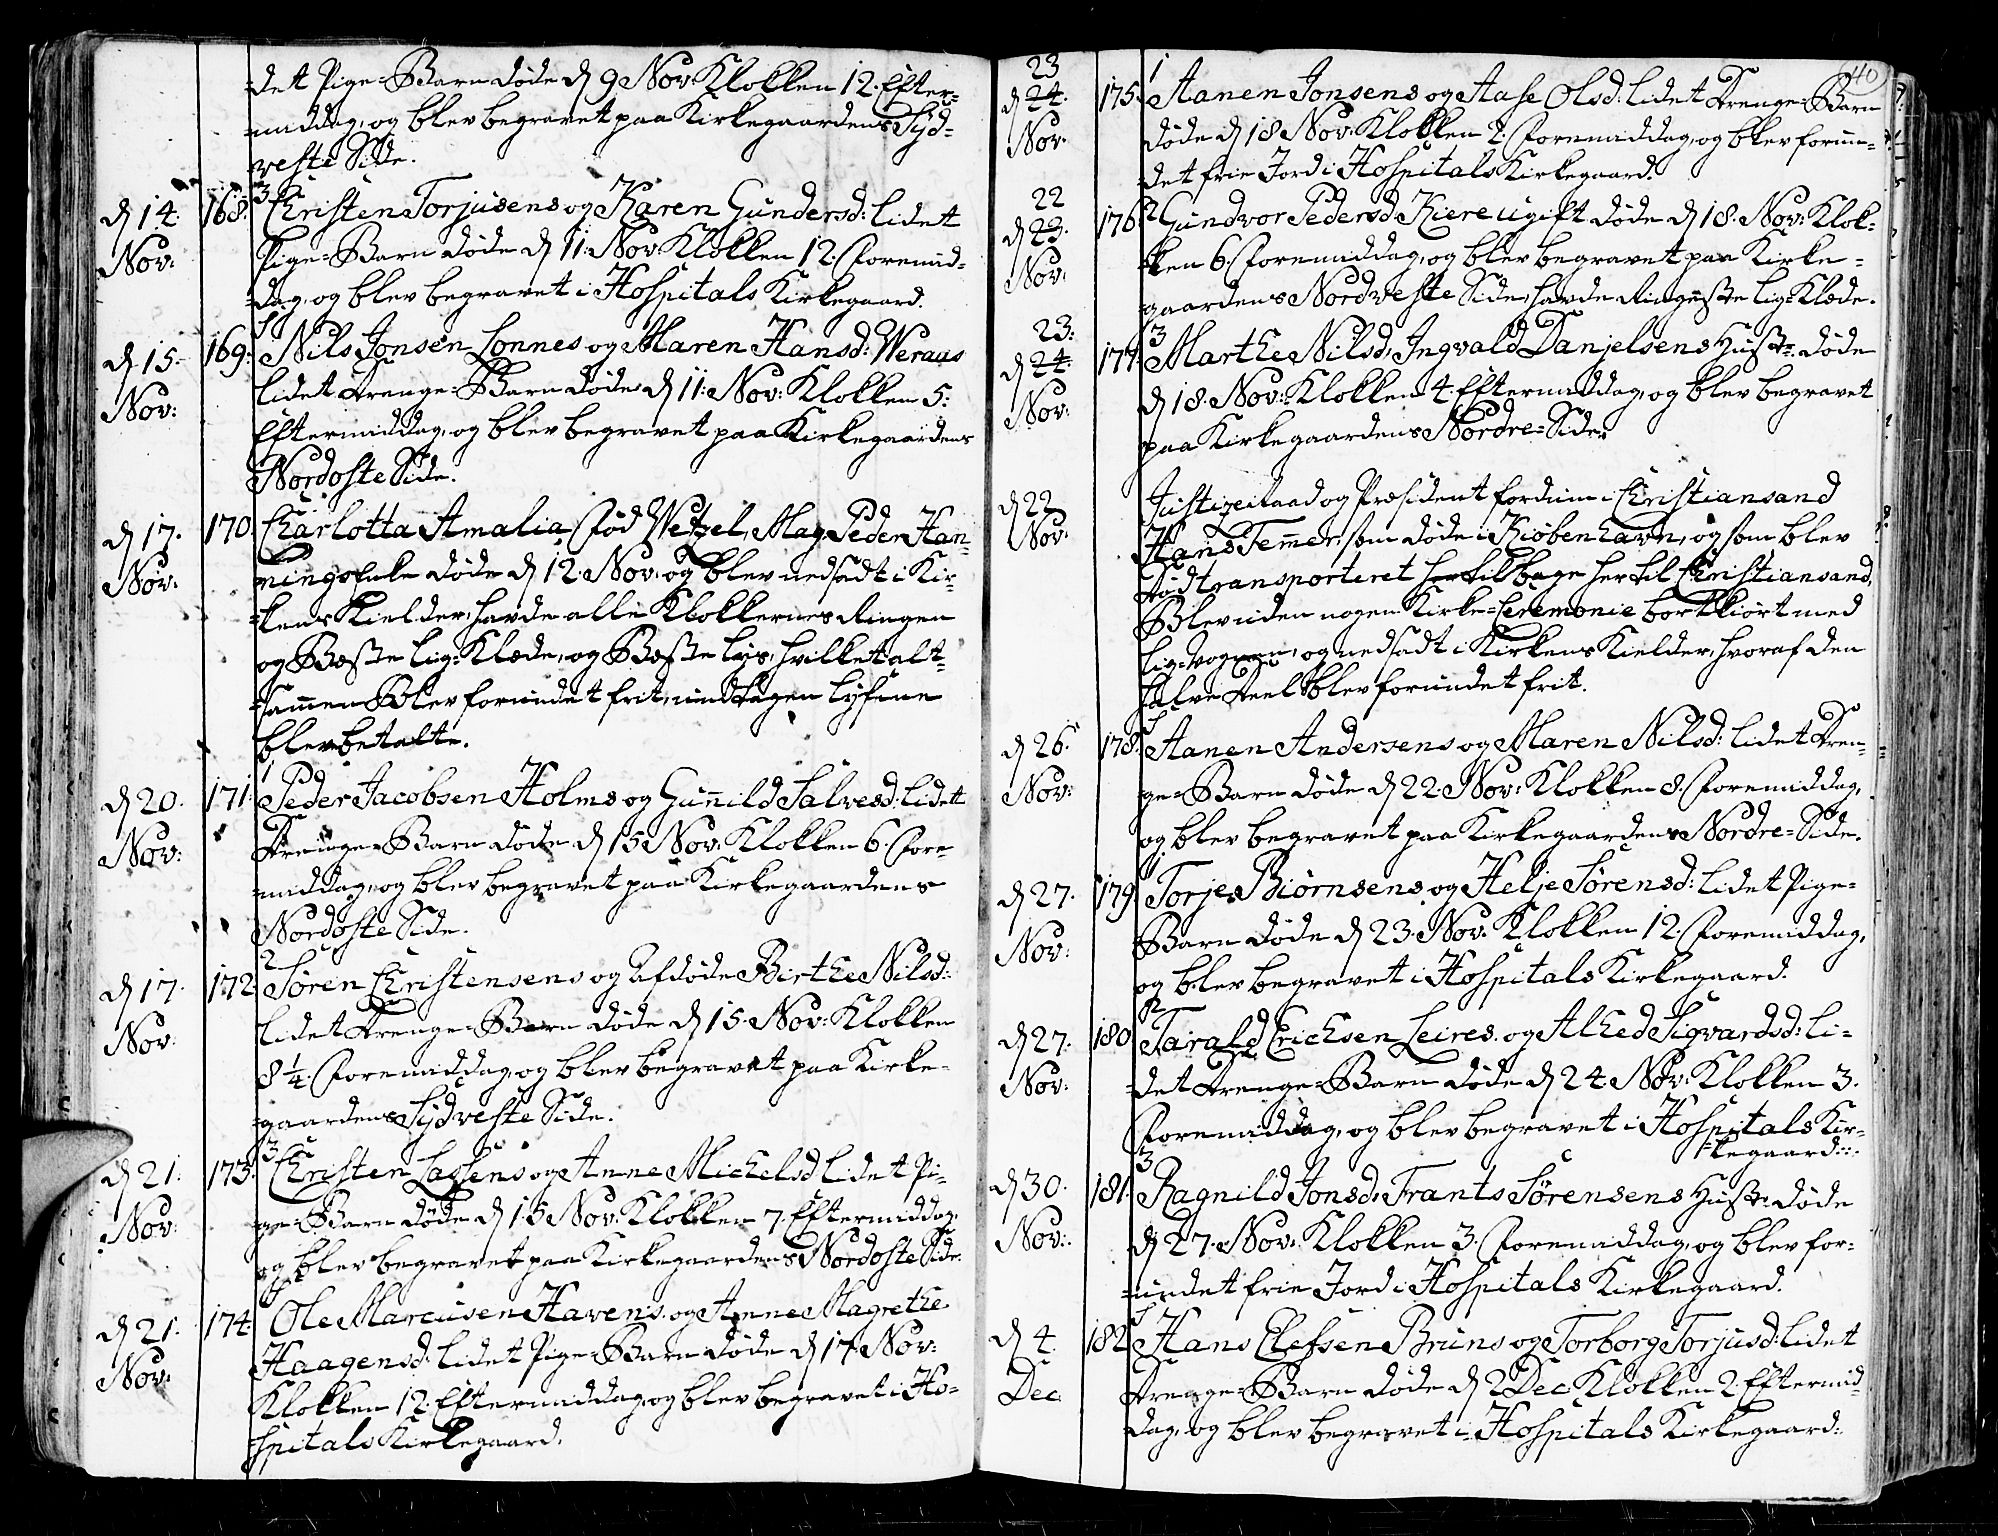 det Pige-Barn døde d 9 Nov: Klokken 12. Efter-
middag, og blev begravet paa Kirkegaardens Syd-
veste Side.
3
d 14. Nov: 168. Christen Torjusens og Karen Gundersd: lidet
Pige-Barn døde d 11. Nov: Klokken 12. Formid-
dag, og blev begravet i Hospitals Kirkegaard.
d 15. Nov: 169. Nils Jonsen Lonnes og Maren Hansd: Weraas
lidet Drenge-Barn døde d 11: Nov: Klokken 5:
Eftermiddag, og blev begravet paa Kirkegaardens
Nordoste Side.
d 17. Nov: 170. Charlotta Amalia Fød Wetzel, Mag. Peder Han-
nings Enke døde d 12. Nov: og blev nedsadt i Kir-
kens Kielder, havde alle Klokkernes Ringen
og Beste Lig-Klæde, og Beste Lys, hvilket alt-
sammen Blev forundet frit, undtagen Lysene
blev betalte.
1
d 20. Nov: 171. Peder Jacobsen Holms og Gunnild Salvesd: lidet
Drenge-Barn døde d 15 Nov: Klokken 6. Fore-
middag, og blev begravet paa Kirkegaardens
Nordoste Side.
2
d 17. Nov: 172. Søren Christensens og Afdøde Birthe Nilsd:
lidet Drenge-Barn døde d 15. Nov: Klokken
8 1/4. Foremiddag, og blev begravet paa Kirke-
gaardens Sydveste Side.
3
d 21. Nov: 173. Christen Lassens og Anne Michelsd lidet Pi-
ge-Barn døde d 15 Nov: Klokken 7. Eftermiddag,
og blev begravet paa Kirkegaardens Nordoste Side.
d 21. Nov: 174. Ole Marcusen Havens. og Anne Magrethe
Haagensd: lidet Pige-Barn døde d 17. Nov:
Klokken 12. Eftermiddag, og blev begravet i Ho-
spitals Kirkegaard.
40
1
23
d 24. Nov: 175. Aanen Jonsens og Aase Olsd: lidet Drenge-Barn
døde d 18. Nov: Klokken 2. Foremiddag, og blev forun-
det frie Jord i Hospitals Kirkegaard.
22
d 23. Nov: 176. 2 Gundvor Pedersd Kiere ugift døde d 18. Nov: Klok-
ken 6. Foremiddag, og blev begravet paa Kirke-
gaardens Nordveste Side, havde Ringeste Lig-Klæde.
23: 3
d 24. Nov: 177. Marthe Nilsd. Ingvald Danjelsens Hustr. døde
d 18. Nov: Klokken 4. Eftermiddag, og blev begravet
paa Kirkegaardens Nordre-Side.
d 22 Nov: Justizeraad og Præsident fordum i Christiansand
Hans Temmer, som døde i Kiøbenhavn, og som blev
død transporteret hertilbage her til Christiansand,
Blev uden nogen Kirke-Ceremonie bortkiørt med
Lig-Vognen, og nedsadt i Kirkens Kielder, hvoraf den
halve Deel blev forundet frit.
d 26. Nov: 178. Aanen Andersens og Maren Nilsd: lidet Dren-
ge-Barn døde d 22. Nov: Klokken 8. Foremiddag,
og blev begravet paa Kirkegaardens Nordre-Side.
1
d 27. Nov: 179. Torjes Biørnsens og Helje Sørensd: lidet Pige-
Barn døde d 23. Nov. Klokken 12. Foremiddag,
og blev begravet i Hospitals Kirkegaard.
2
d 27. Nov: 180. Tarald Erichsen Leires. og Alhed Sigvardsd: li-
det Drenge-Barn døde d 24. Nov: Klokken 3.
Foremiddag, og blev begravet i Hospitals Kir-
kegaard.
3
d 30. Nov: 181. Ragnild Jonsd. Frants Sørensens Hustr. døde
d 27. Nov. Klokken 3. Foremiddag, og blev for-
undet frie Jord i Hospitals Kirkegaard.
d 4. Dec 182. Hans Elefsen Bruns og Torborg Torjusd: lidet
Drenge-Barn døde d 2 Dec Klokken 2. Eftermid-
dag, og blev begravet i Hospitals Kirkegaard.